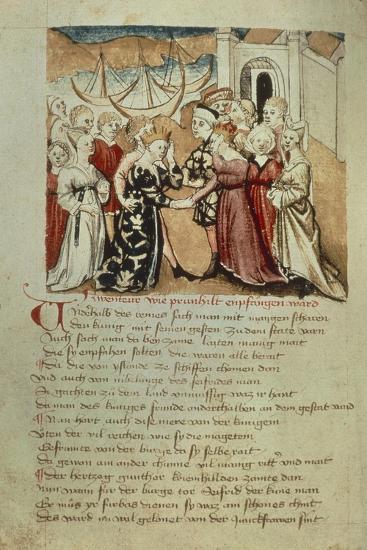 Awenteur wie prunhilt enpfangen ward
Enehalb des reines sach man mit mangen scharen
den kunig mit seinen gesten zu dem state varn
Auch sach man da bey zame laiten manig mait
die sy enpfahen solten die waren alle berait
Da die von yslande ze schiffen chomen dan
vnd auch von nibelunge des seifrides man
Sy gachten zu dem land vnmussig waz ir hant
da man des kuniges frunde anderthalben an dem gestat vand
Nun hort auch dise mere von der kunigein
Vten der vil reichen wie sy die magetein
Gefrumte von der burge da sy selbe rait
da gewan an ander chunne vil manig ritter vnd mait
der hertzog gunther kriemhilden zamte dan
nun wan fur der burge tor Seifrid der kune man
Er mus ir furbas dienen sy waz ain schones chint
des ward im wol gelonet von der Junckfrawen sint